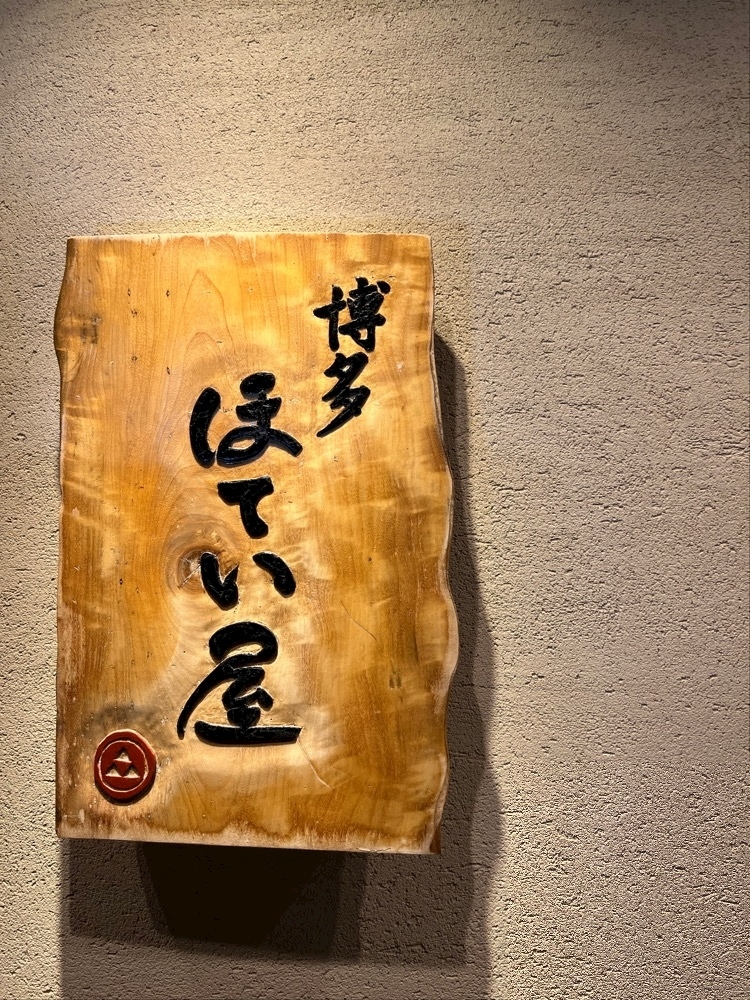 博多
ほてい屋